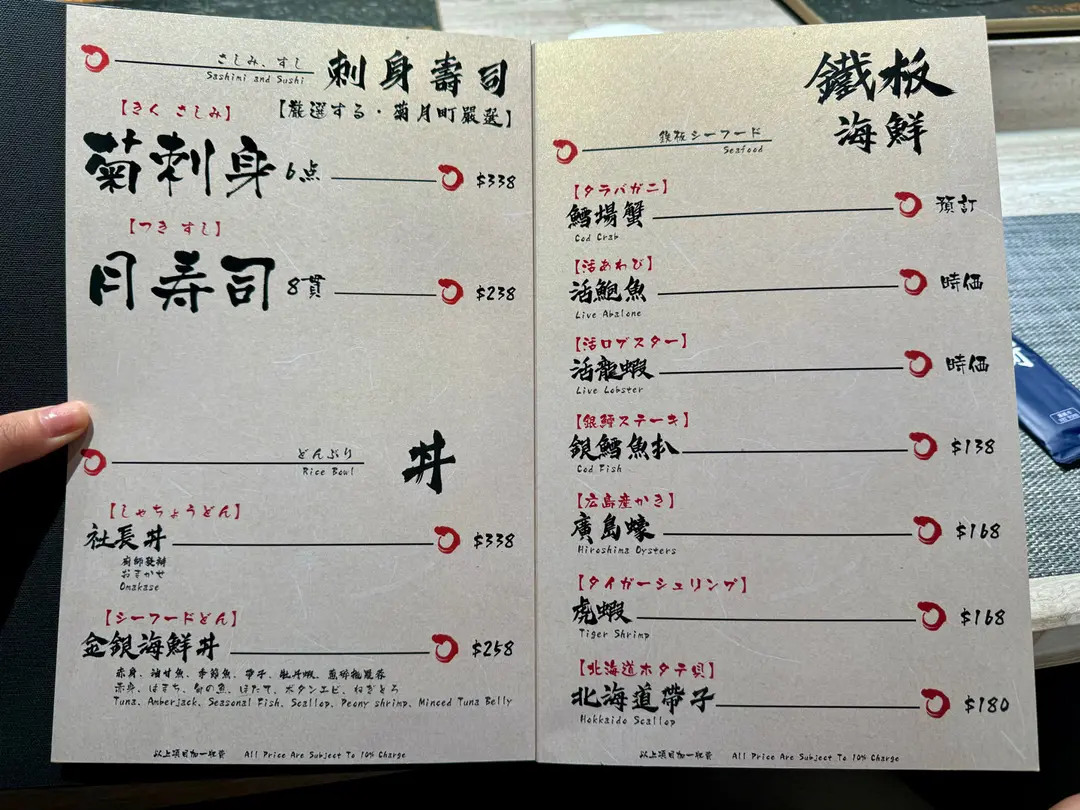 さしみ、すし
Sashimi and Sushi
刺身壽司
【きく さしみ】
【厳選する・菊月町嚴選】
菊刺身 6点 $338
【つき すし】
月寿司 8貫 $238
どんぶり
Rice Bowl
丼
【しゃちょうどん】
社長丼 $338
廚師發辦
おまかせ
Omakase
【シーフードどん】
金銀海鮮丼 $258
赤身、油甘魚、季節魚、帶子、牡丹蝦、蔥碎拖羅蓉
赤身、はまち、旬の魚、ほたて、ボタンエビ、ねぎとろ
Tuna、Amberjack、Seasonal Fish、Scallop、Peony shrimp、Minced Tuna Belly
以上項目加一收費 All Price Are Subject To 10% Charge
鐵板
海鮮
鉄板シーフード
Seafood
【タラバガニ】
鱈場蟹 預訂
Cod Crab
【活あわび】
活鮑魚 時価
Live Abalone
【活ロブスター】
活龍蝦 時価
Live Lobster
【銀鱈ステーキ】
銀鱈魚扒 $138
Cod Fish
【広島産かき】
廣島蠔 $168
Hiroshima Oysters
【タイガーシュリンプ】
虎蝦 $168
Tiger Shrimp
【北海道ホタテ貝】
北海道帶子 $180
Hokkaido Scallop
以上項目加一收費 All Price Are Subject To 10% Charge